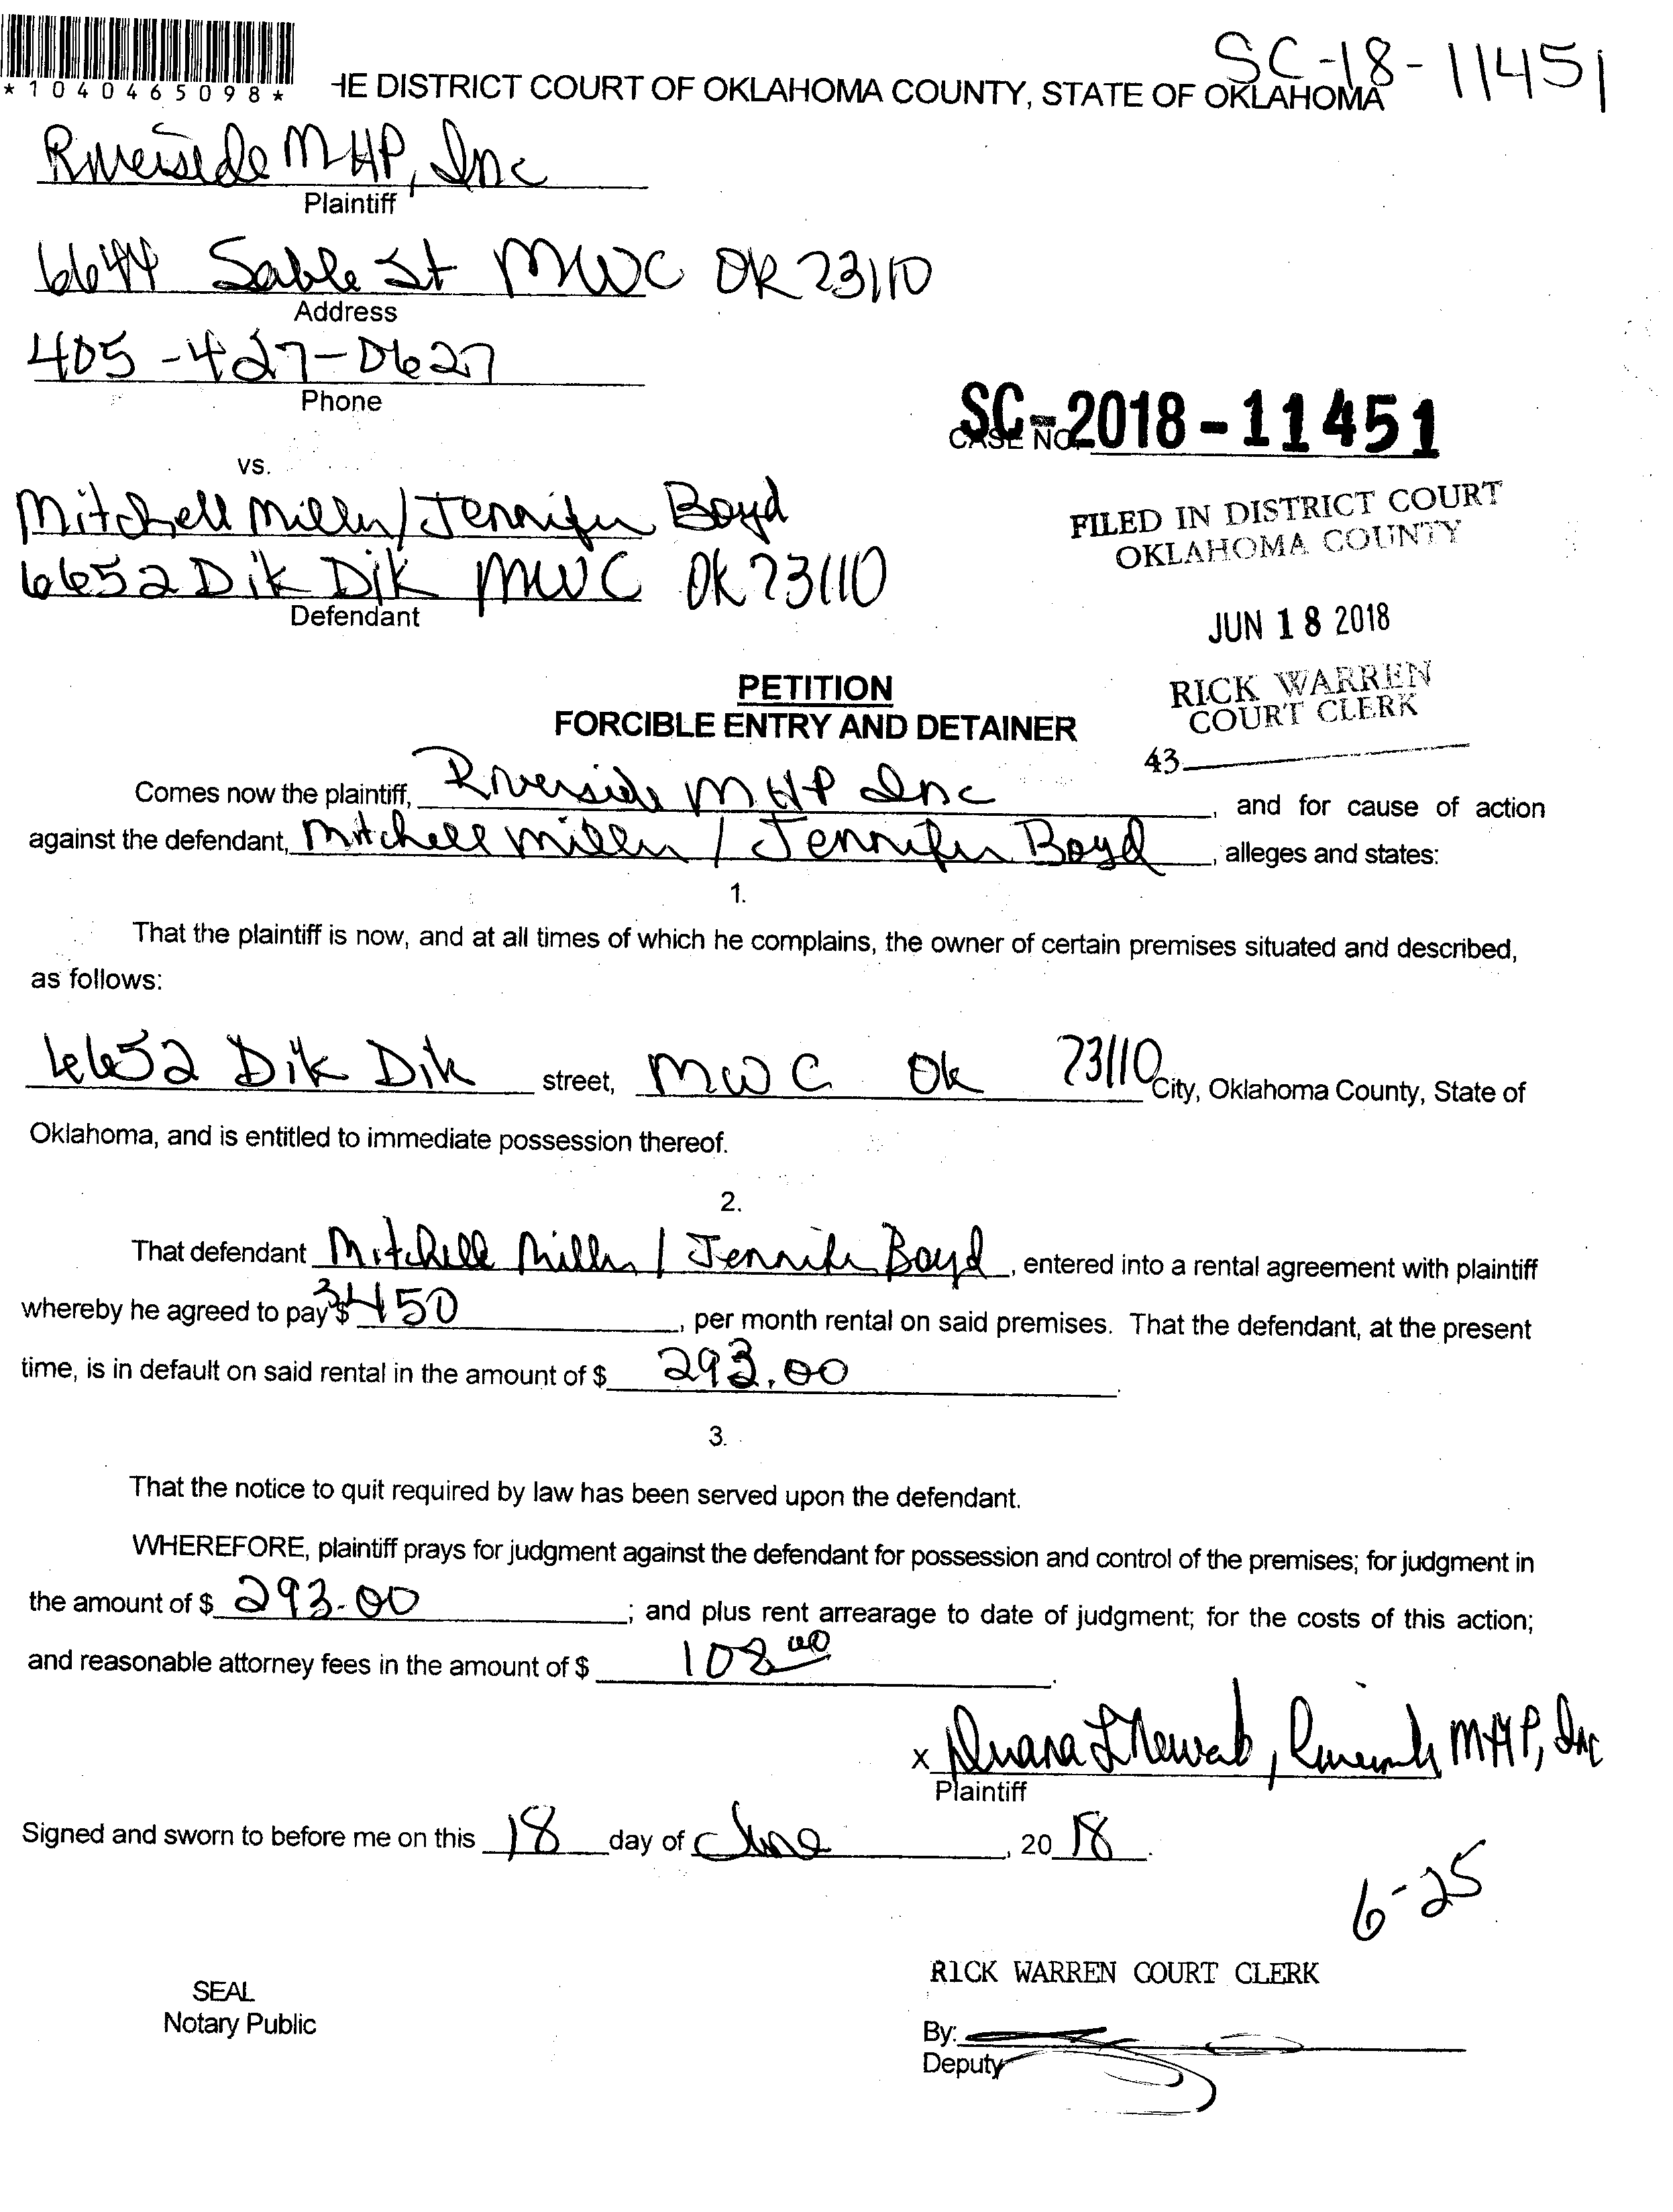 SC-18-11451
*1040465098*
HE DISTRICT COURT OF OKLAHOMA COUNTY, STATE OF OKLAHOMA
Riverside MHP, Inc
Plaintiff
6644 Sable St MWC OK 73110
Address
405-427-0627
Phone
CASE NO. SC-2018-11451
vs.
Mitchell Miller/Jennifer Boyd
6652 Dik Dik MWC OK 73110
Defendant
FILED IN DISTRICT COURT
OKLAHOMA COUNTY
JUN 18 2018
RICK WARREN
COURT CLERK
43
PETITION
FORCIBLE ENTRY AND DETAINER
Comes now the plaintiff, Riverside MHP Inc, and for cause of action
against the defendant, Mitchell Miller / Jennifer Boyd, alleges and states:
1.
That the plaintiff is now, and at all times of which he complains, the owner of certain premises situated and described,
as follows:
6652 Dik Dik street, MWC Ok 73110 City, Oklahoma County, State of
Oklahoma, and is entitled to immediate possession thereof.
2.
That defendant Mitchell Miller / Jennifer Boyd, entered into a rental agreement with plaintiff
whereby he agreed to pay $ 450, per month rental on said premises. That the defendant, at the present
time, is in default on said rental in the amount of $ 293.00.
3.
That the notice to quit required by law has been served upon the defendant.
WHEREFORE, plaintiff prays for judgment against the defendant for possession and control of the premises; for judgment in
the amount of $ 293.00; and plus rent arrearage to date of judgment; for the costs of this action;
and reasonable attorney fees in the amount of $ 108.00.
x MHP, Inc
Plaintiff
Signed and sworn to before me on this 18 day of June, 20 18.
6-25
RICK WARREN COURT CLERK
SEAL
Notary Public
By:
Deputy